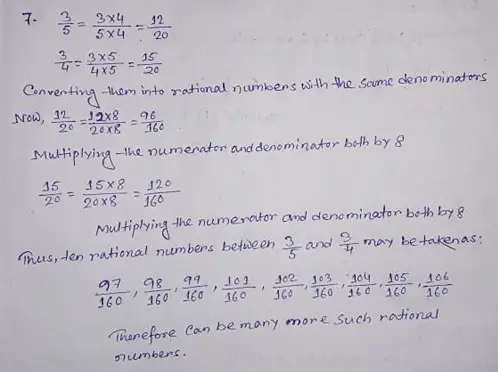 7. 3/5 = 3×4/5×4 = 12/20
3/4 = 3×5/4×5 = 15/20
Converting them into rational numbers with the same denominators
Now, 12/20 = 12×8/20×8 = 96/160
Multiplying the numerator and denominator both by 8
15/20 = 15×8/20×8 = 120/160
Multiplying the numerator and denominator both by 8
Thus, ten rational numbers between 3/5 and 3/4 may be taken as:
97/160, 98/160, 99/160, 101/160, 102/160, 103/160, 104/160, 105/160, 106/160
Therefore can be many more such rational
numbers.